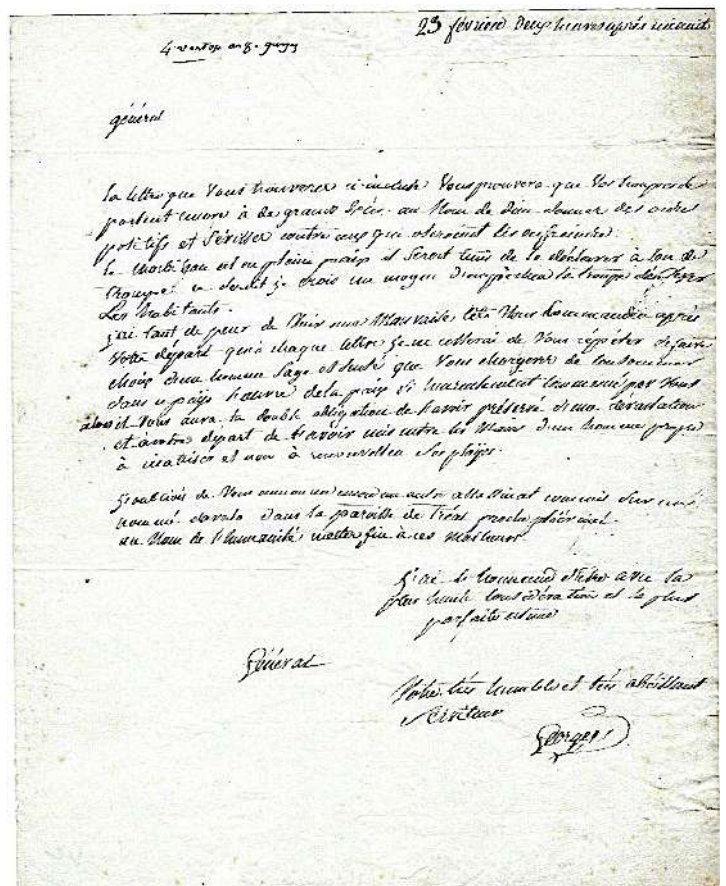 23 février deux heures après minuit
4 ventose an 8.
général
la lettre que Vous trouverez ci incluse Vous prouvera que Vos troupes se
portent encore à de grands Excès. au Nom de dieu donner des ordres
positifs et Sévisser contre ceux qui oseraient les enfreindre.
le morbihan est en pleine paix il Serait
troupe je crois un moyen d'empêcher la troupe
Les habitants.
j'ai tant de peur de Voir une Mauvaise tête Nous commander après
Votre départ qu'à chaque lettre je ne cesserai de Vous répéter de faire
choix d'un homme Sage et sensé que Vous chargerez de
dans ce pays l'œuvre de la paix Si heureusement commencé par Vous
alors il Vous aura la double obligation de l'avoir préservé d'une dévastation
et avotre départ de l'avoir mis entre les Mains d'un homme propre
à cicatriser et non à renouveller Ses playes.
j'oubliois de Vous annoncer encore un autre assassinat commis Sur un
nommé davalo dans la paroisse de Tréal proche ploërmel.
au Nom de l'humanité mettez fin à ces Malheurs
j'ai l'honneur d'être avec la
plus haute considération et la plus
parfaite estime
Général
Votre très humble et très obéissant
Serviteur
Georges